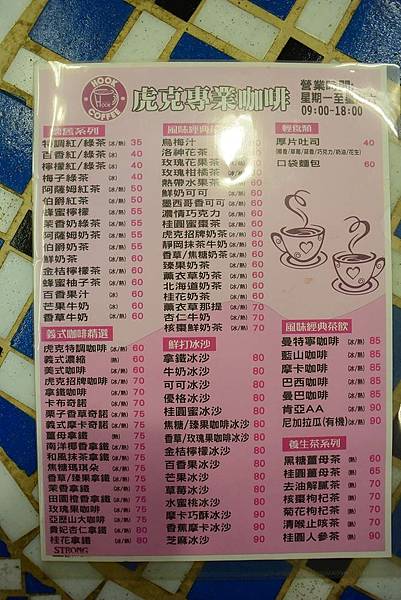 HOOK
COFFEE
虎克專業咖啡
營業時間:
09:00-18:00
懷舊系列
特調紅/綠茶 (冰/熱) 35
百香紅/綠茶 (冰) 40
檸檬紅/綠茶 (冰/熱) 40
梅子綠茶 (冰) 40
阿薩姆紅茶 (冰/熱) 50
伯爵紅茶 (冰/熱) 50
蜂蜜檸檬 (冰/熱) 55
茉香奶綠茶 (冰/熱) 55
阿薩姆奶茶 (冰/熱) 55
伯爵奶茶 (冰/熱) 55
鮮奶茶 (冰/熱) 60
金桔檸檬茶 (冰/熱) 60
蜂蜜柚子茶 (冰/熱) 60
百香果汁 (冰) 60
芒果牛奶 (冰) 60
香草牛奶 (冰/熱) 60
義式咖啡精選
虎克特調咖啡 (冰/熱) 60
義式濃縮 (熱) 60
美式咖啡 (冰/熱) 60
虎克招牌咖啡 (冰/熱) 70
拿鐵咖啡 (冰/熱) 70
卡布奇諾 (冰/熱) 70
栗子香草奇諾 (冰/熱) 75
義式摩卡奇諾 (冰/熱) 75
薑母拿鐵 (熱) 75
南洋椰香拿鐵 (冰/熱) 75
和風抹茶拿鐵 (冰/熱) 75
焦糖瑪琪朵 (冰/熱) 75
香草/臻果拿鐵 (冰/熱) 75
茉香拿鐵 (冰/熱) 75
田園橙香拿鐵 (冰/熱) 75
玫瑰果咖啡 (冰/熱) 75
亞歷山大咖啡 (冰/熱) 75
貴妃杏仁拿鐵 (冰/熱) 80
桂花拿鐵 (冰/熱) 80
STRONG
烏梅汁 60
洛神花茶 60
玫瑰花果茶 60
玫瑰柑橘茶 60
熱帶水果茶 60
鮮奶可可 60
墨西哥香可可 60
濃情巧克力 60
桂圓蜜棗茶 60
虎克招牌奶茶 60
靜岡抹茶牛奶 60
香草/焦糖奶茶 60
臻果奶茶 60
薰衣草奶茶 60
北海道奶茶 60
桂花奶茶 60
薰衣草那提 70
杏仁牛奶 70
核棗鮮奶茶 70
鮮打冰沙
拿鐵冰沙 80
牛奶冰沙 80
可可冰沙 80
優格冰沙 80
桂圓蜜冰沙 80
焦糖/臻果咖啡冰沙 80
香草/玫瑰果咖啡冰沙 80
金桔檸檬冰沙 80
百香果冰沙 80
芒果冰沙 80
草莓冰沙 80
水蜜桃冰沙 80
摩卡巧酥冰沙 90
香蕉摩卡冰沙 90
芝麻冰沙 90
輕食類
厚片吐司 40
口袋麵包 60
風味經典茶飲
曼特寧咖啡 (冰/熱) 85
藍山咖啡 (冰/熱) 85
摩卡咖啡 (冰/熱) 85
巴西咖啡 (冰/熱) 85
曼巴咖啡 (冰/熱) 85
肯亞AA (冰/熱) 90
尼加拉瓜(有機) (冰/熱) 90
養生茶系列
黑糖薑母茶 (熱) 60
桂圓薑母茶 (熱) 65
去油解膩茶 (熱) 70
核棗枸杞茶 (熱) 70
菊花枸杞茶 (熱) 70
清喉止咳茶 (熱) 70
桂圓人參茶 (熱) 90